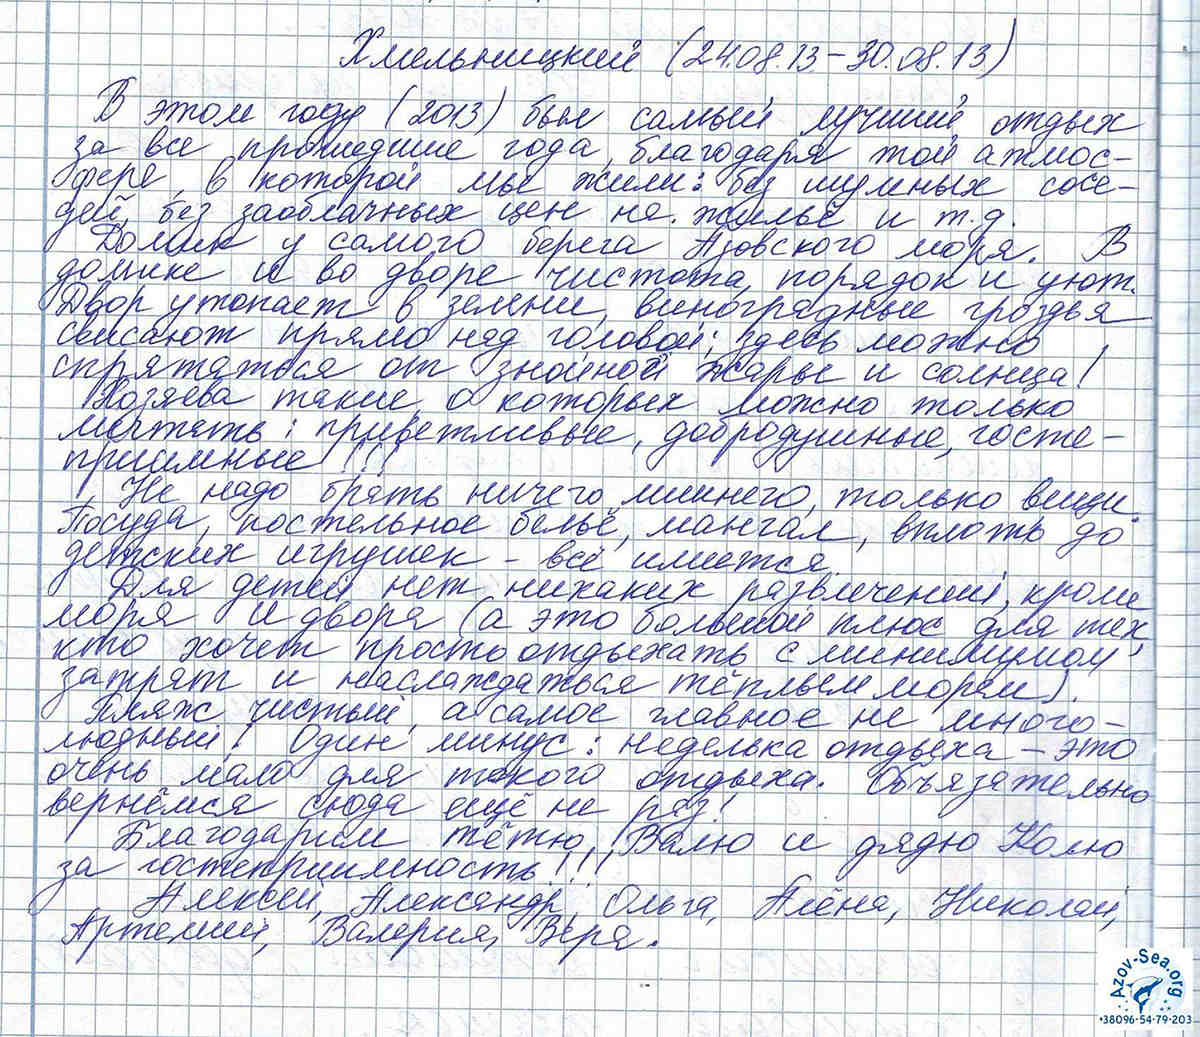 Хмельницкий (24.08.13 – 30.08.13)
В этом году (2013) был самый лучший отдых
за все прошедшие года, благодаря той атмос-
фере, в которой мы жили: без шумных сосе-
дей, без заоблачных цен на жильё и т.д.
Домик у самого берега Азовского моря. В
домике и во дворе чистота, порядок и уют.
Двор утопает в зелени, виноградные гроздья
свисают прямо над головой; здесь можно
спрятаться от знойной жары и солнца!
Хозяева такие о которых можно только
мечтать: приветливые, добродушные, госте-
приимные!!!
Не надо брать ничего лишнего, только вещи.
Посуда, постельное бельё, мангал, вплоть до
детских игрушек – всё имеется.
Для детей нет никаких развлечений, кроме
моря и двора (а это большой плюс для тех,
кто хочет просто отдыхать с минимумом
затрат и наслаждаться тёплым морем).
Пляж чистый, а самое главное не много-
людный! Один минус: неделька отдыха – это
очень мало для такого отдыха. Объязательно
вернёмся сюда ещё не раз!
Благодарим тётю Валю и дядю Колю
за гостеприимность!!!
Алексей, Александр, Ольга, Алёна, Николай,
Артемий, Валерия, Вера.
Azov-Sea.org
+38096-54-79-203